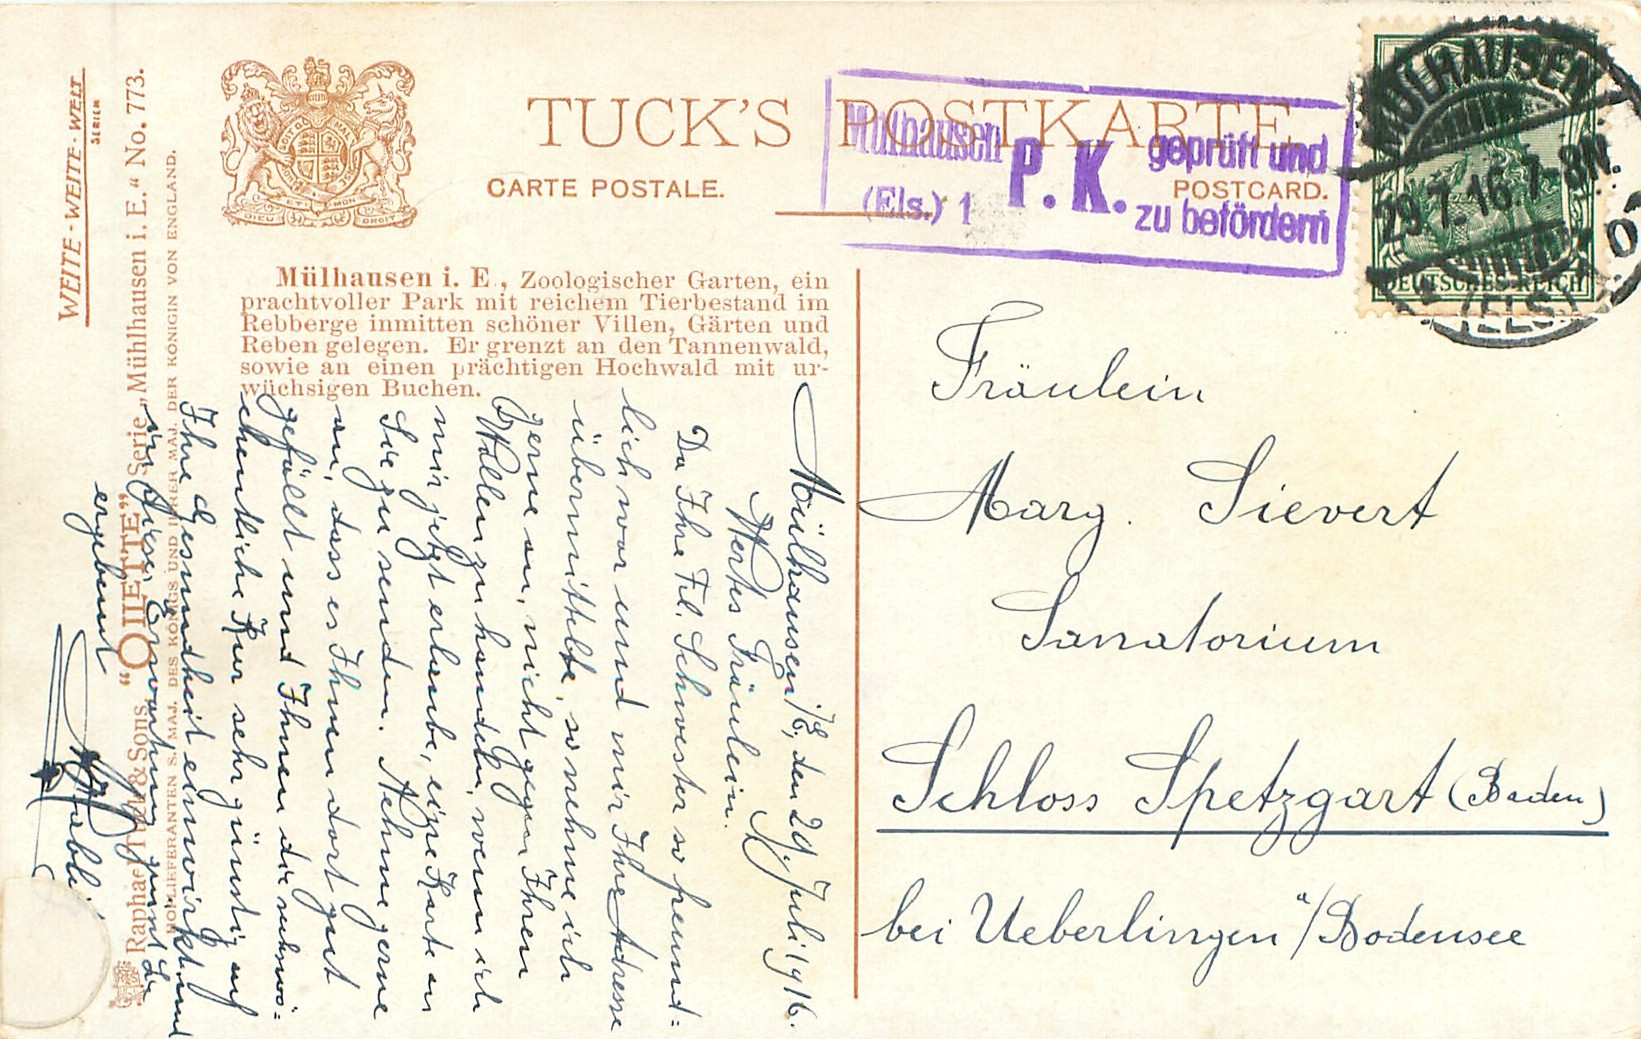 WEITE - WEITE - WELT
SERIEN
DIEU ET MON DROIT
TUCK'S POSTKARTE
CARTE POSTALE.
POSTCARD.
Mülhausen
(Els.) 1
P. K.
geprüft und
zu befördern
MÜLHAUSEN
29.7.16.7-8N.
(ELS.)
DEUTSCHES REICH
Mülhausen i. E., Zoologischer Garten, ein
prachtvoller Park mit reichem Tierbestand im
Rebberge inmitten schöner Villen, Gärten und
Reben gelegen. Er grenzt an den Tannenwald,
sowie an einen prächtigen Hochwald mit ur-
wüchsigen Buchen.
Raphael Tuck & Sons. "OILETTE" Serie „Mühlhausen i. E." No. 773.
HOFLIEFERANTEN S. MAJ. DES KÖNIGS UND IHRER MAJ. DER KÖNIGIN VON ENGLAND.
Fräulein
Marg. Sievert
Sanatorium
Schloss Spetzgart (Baden)
bei Ueberlingen a/Bodensee
Mülhausen i/E, den 29. Juli 1916.
Wertes Fräulein.
Da Ihre Frl. Schwester so freund=
lich war und mir Ihre Adresse
übermittelte, so nehme ich
gerne an, nicht gegen Ihren
Willen zu handeln, wenn ich
mir jetzt erlaube, eine Karte an
Sie zu senden. Nehme gerne
an, dass es Ihnen dort gut
gefällt und Ihnen die
Kur sehr günstig auf
Ihre Gesundheit einwirkt und
in dieser Erwartung grüsst Sie
ergebenst